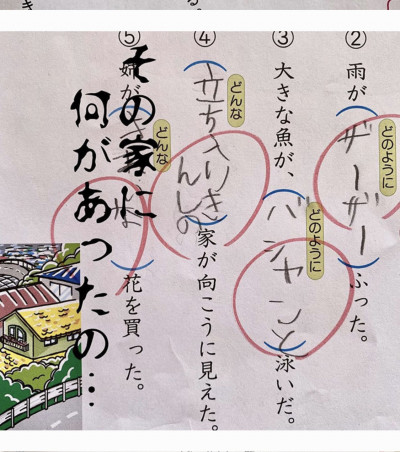 ②雨が(ザーザー)ふった。
どのように
③大きな魚が、(バシャンと)泳いだ。
どのように
④(立ち入りきんしの)家が向こうに見えた。
どんな
⑤姉が
どんな
花を買った。
その家に
何があったの…